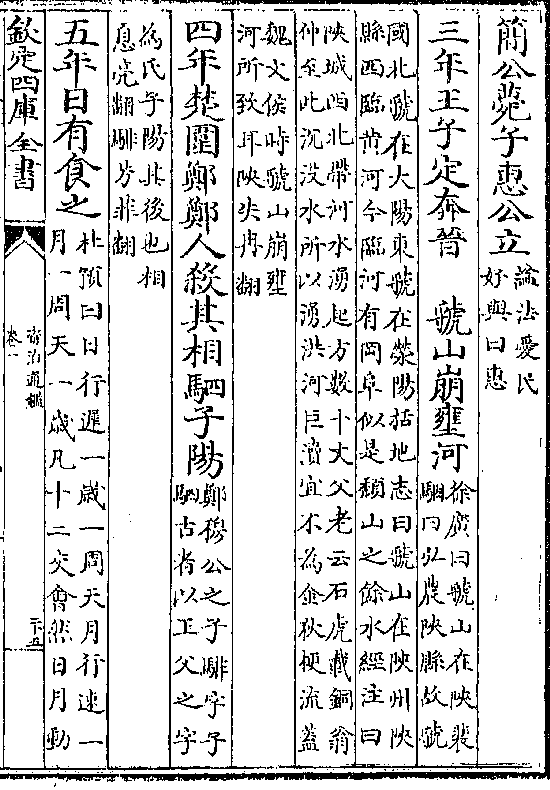 簡公薨子惠公立諡法愛民
好與曰惠
三年王子定奔晉　虢山崩壅河徐廣曰虢山在陜裴
駰曰弘農陜縣故虢
國北虢在大陽東虢在滎陽括地志曰虢山在陜州陜
縣西臨黄河今臨河有岡阜似是頽山之餘水經注曰
陜城西北帶河水湧起方數十丈父老云石虎載銅翁
仲至此沉没水所以湧洪河巨瀆宜不為金狄梗流蓋
魏文侯時虢山崩壅
河所致耳陜失冉翻
四年楚圍鄭鄭人殺其相駟子陽鄭穆公之子騑字子
駟古者以王父之字
為氏子陽其後也相
息亮翻騑芳菲翻
五年日有食之杜預曰日行遲一歲一周天月行速一
月一周天一歲凡十二交會然日月動
欽定四庫全書
資治通鑑
卷一
二十五